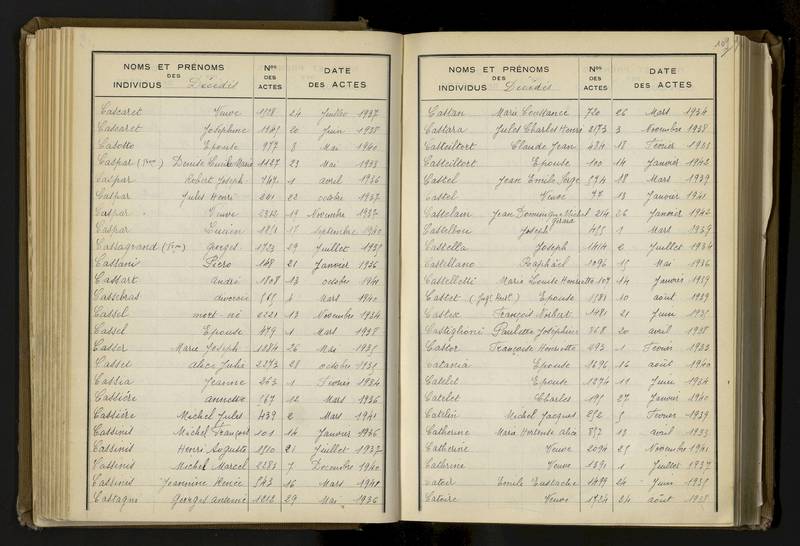 NOMS ET PRÉNOMS DES INDIVIDUS Décédés Nos DES ACTES DATE DES ACTES
Cascaret Veuve 24 Juillet 1937
Cascaret Joséphine 20 Juin 1938
Casotto Epouse 977 8 Mai 1940
Caspar Denise Emile Marie 1127 23 Mai 1938
Caspar Robert Joseph 1 avril 1936
Caspar Jules Henri 22 octobre 1937
Caspar Veuve 2312 19 Novembre 1937
Caspar Lucien 17 Septembre 1940
Cassagrand Georges 1723 29 Juillet 1935
Cassani Piero 148 21 Janvier 1936
Cassart André 1808 13 octobre 1941
Cassebras 565 4 Mars 1940
Cassel mort-né 2221 13 Novembre 1934
Cassel Epouse 479 1 Mars 1938
Casser Marie Joseph 1284 26 Mai 1935
Casset alice Julie 2273 28 octobre 1935
Cassia Jeanne 263 1 Février 1934
Cassière annette 567 12 Mars 1936
Cassière Michel Jules 439 2 Mars 1941
Cassinis Michel François 101 14 Janvier 1936
Cassinis Henri Auguste 1510 21 Juillet 1937
Cassinis Michel Marcel 2283 7 Décembre 1940
Cassinis Jeannine Renée 543 16 Mars 1941
Castagné Georges Antoine 1212 29 Mai 1936
109
NOMS ET PRÉNOMS DES INDIVIDUS Décédés Nos DES ACTES DATE DES ACTES
Castan Marie Constance 720 26 Mars 1934
Castara Jules Charles Henri 2173 3 Novembre 1938
Casteiltort Claude Jean 434 18 Février 1935
Casteiltort Epouse 100 14 Janvier 1942
Castel Jean Emile Serge 574 18 Mars 1939
Castel Veuve 77 13 Janvier 1941
Castelain Jean Dominique Michel Gérard 214 26 Janvier 1942
Castelbou Joseph 455 1 Mars 1939
Castella Joseph 1414 2 Juillet 1934
Castellano Raphaël 1096 15 Mai 1936
Castellotti Marie Louise Henriette 107 14 Janvier 1939
Castet Epouse 1581 10 août 1939
Castex François Norbert 1481 21 Juin 1935
Castiglioni Paulette Joséphine 868 20 avril 1938
Castor Françoise Henriette 293 1 Février 1935
Catania Epouse 1696 16 août 1940
Catelet Epouse 1274 11 Juin 1934
Catelet Charles 195 27 Janvier 1940
Catelin Michel Jacques 252 5 Février 1939
Catherine Marie Hortense alice 857 13 avril 1935
Catherine Veuve 2094 25 Novembre 1941
Cathrine Veuve 1391 1 Juillet 1937
Catoir Emile Eustache 1499 24 Juin 1935
Catoire Veuve 1724 24 août 1938